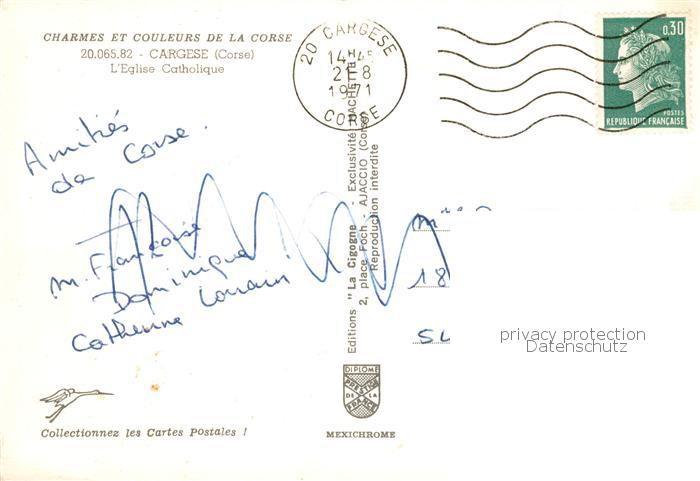 CHARMES ET COULEURS DE LA CORSE
20.065.82 - CARGESE (Corse)
L'Eglise Catholique
20 CARGESE
14H45
21-8
1971
CORSE
0,30
POSTES
REPUBLIQUE FRANÇAISE
Amitiés
de Corse.
M. Françoise
Dominique
Catherine
Editions "La Cigogne" - Exclusivité HACHETTE
2, place Foch - AJACCIO (Corse)
Reproduction interdite
18
privacy protection
Datenschutz
DIPLOME
PRESTIGE
DE LA
FRANCE
Collectionnez les Cartes Postales !
MEXICHROME